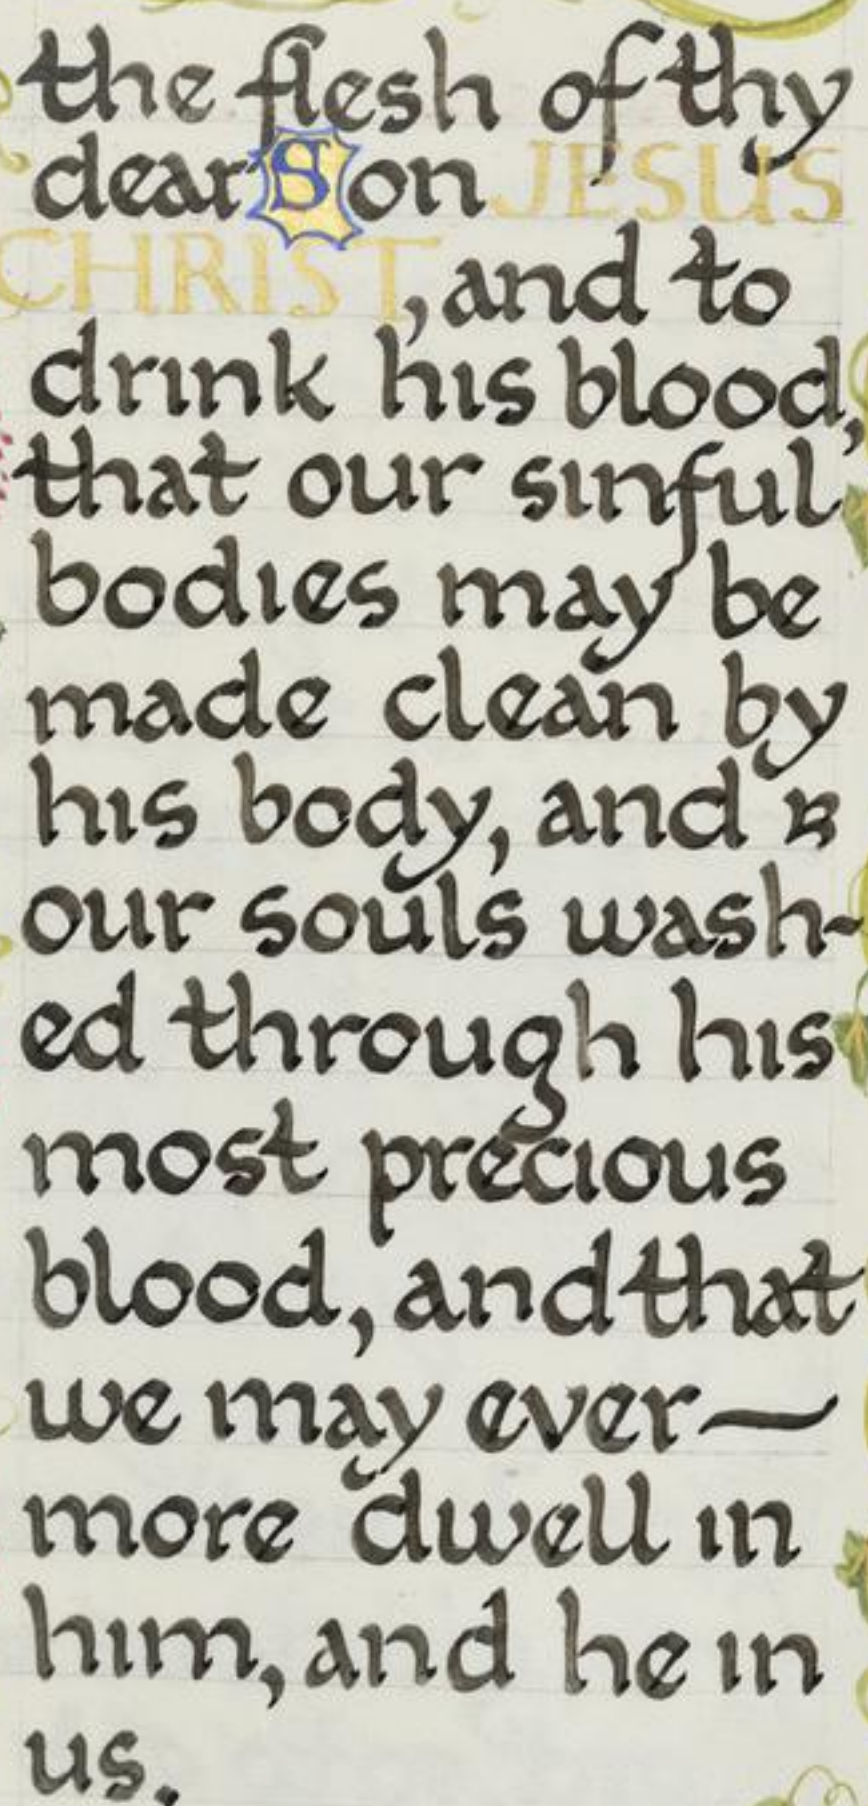 the flesh of thy
dear Son JESUS
CHRIST, and to
drink his blood,
that our sinful
bodies may be
made clean by
his body, and
our souls wash-
ed through his
most precious
blood, and that
we may ever—
more dwell in
him, and he in
us.